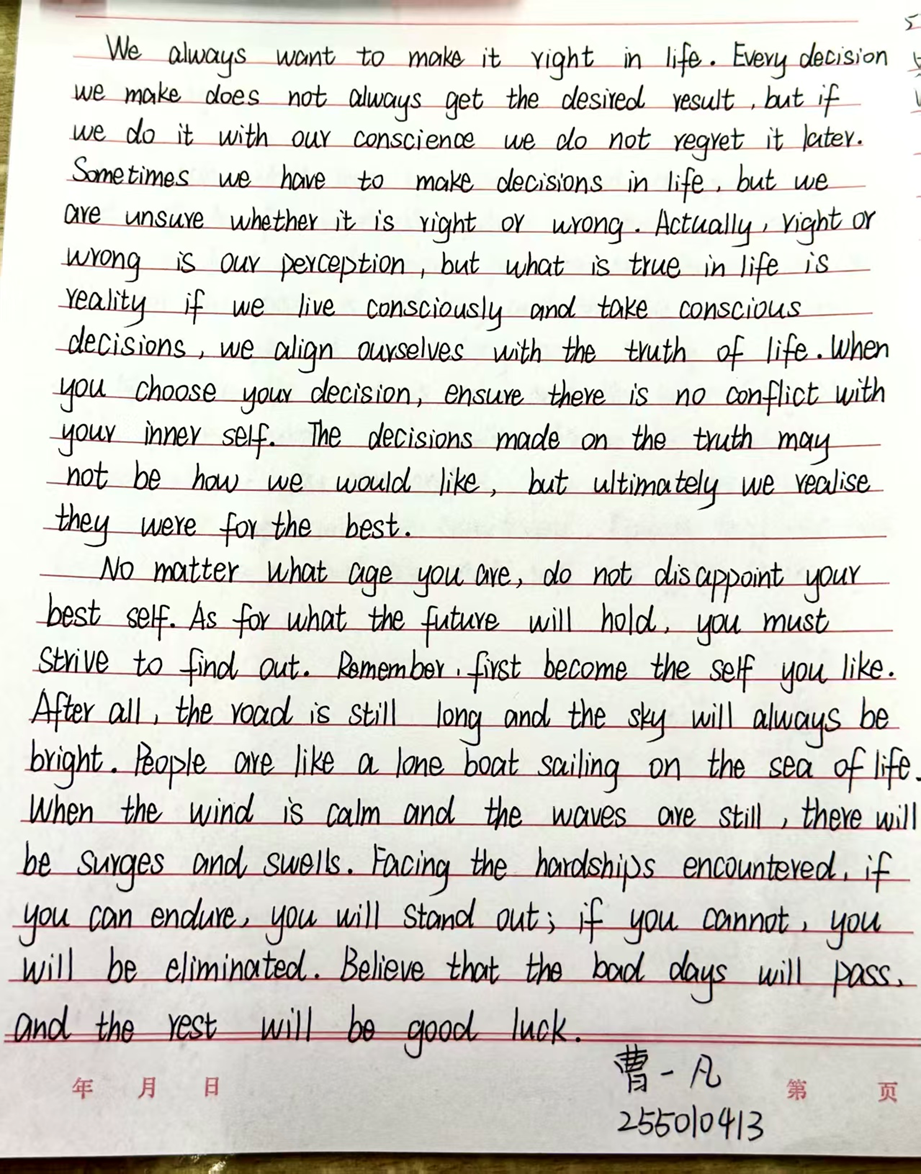 We always want to make it right in life. Every decision
we make does not always get the desired result, but if
we do it with our conscience we do not regret it later.
Sometimes we have to make decisions in life, but we
are unsure whether it is right or wrong. Actually, right or
wrong is our perception, but what is true in life is
reality if we live consciously and take conscious
decisions, we align ourselves with the truth of life. When
you choose your decision, ensure there is no conflict with
your inner self. The decisions made on the truth may
not be how we would like, but ultimately we realise
they were for the best.
No matter what age you are, do not disappoint your
best self. As for what the future will hold, you must
strive to find out. Remember, first become the self you like.
After all, the road is still long and the sky will always be
bright. People are like a lone boat sailing on the sea of life.
When the wind is calm and the waves are still, there will
be surges and swells. Facing the hardships encountered, if
you can endure, you will stand out; if you cannot, you
will be eliminated. Believe that the bad days will pass,
and the rest will be good luck.
曹一凡
年 月 日 第 页
255010413